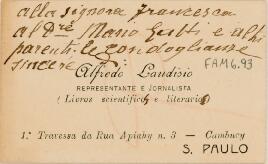 alla signora Francesca
al Dre Mario Gesti e altri
parenti le condoglianze
sincere
Alfredo Landisio
FAM 6.93
REPRESENTANTE E JORNALISTA
(Livros scientificos e literarios)
1.ª Travessa da Rua Apiahy n. 3 — Cambucy
S. PAULO